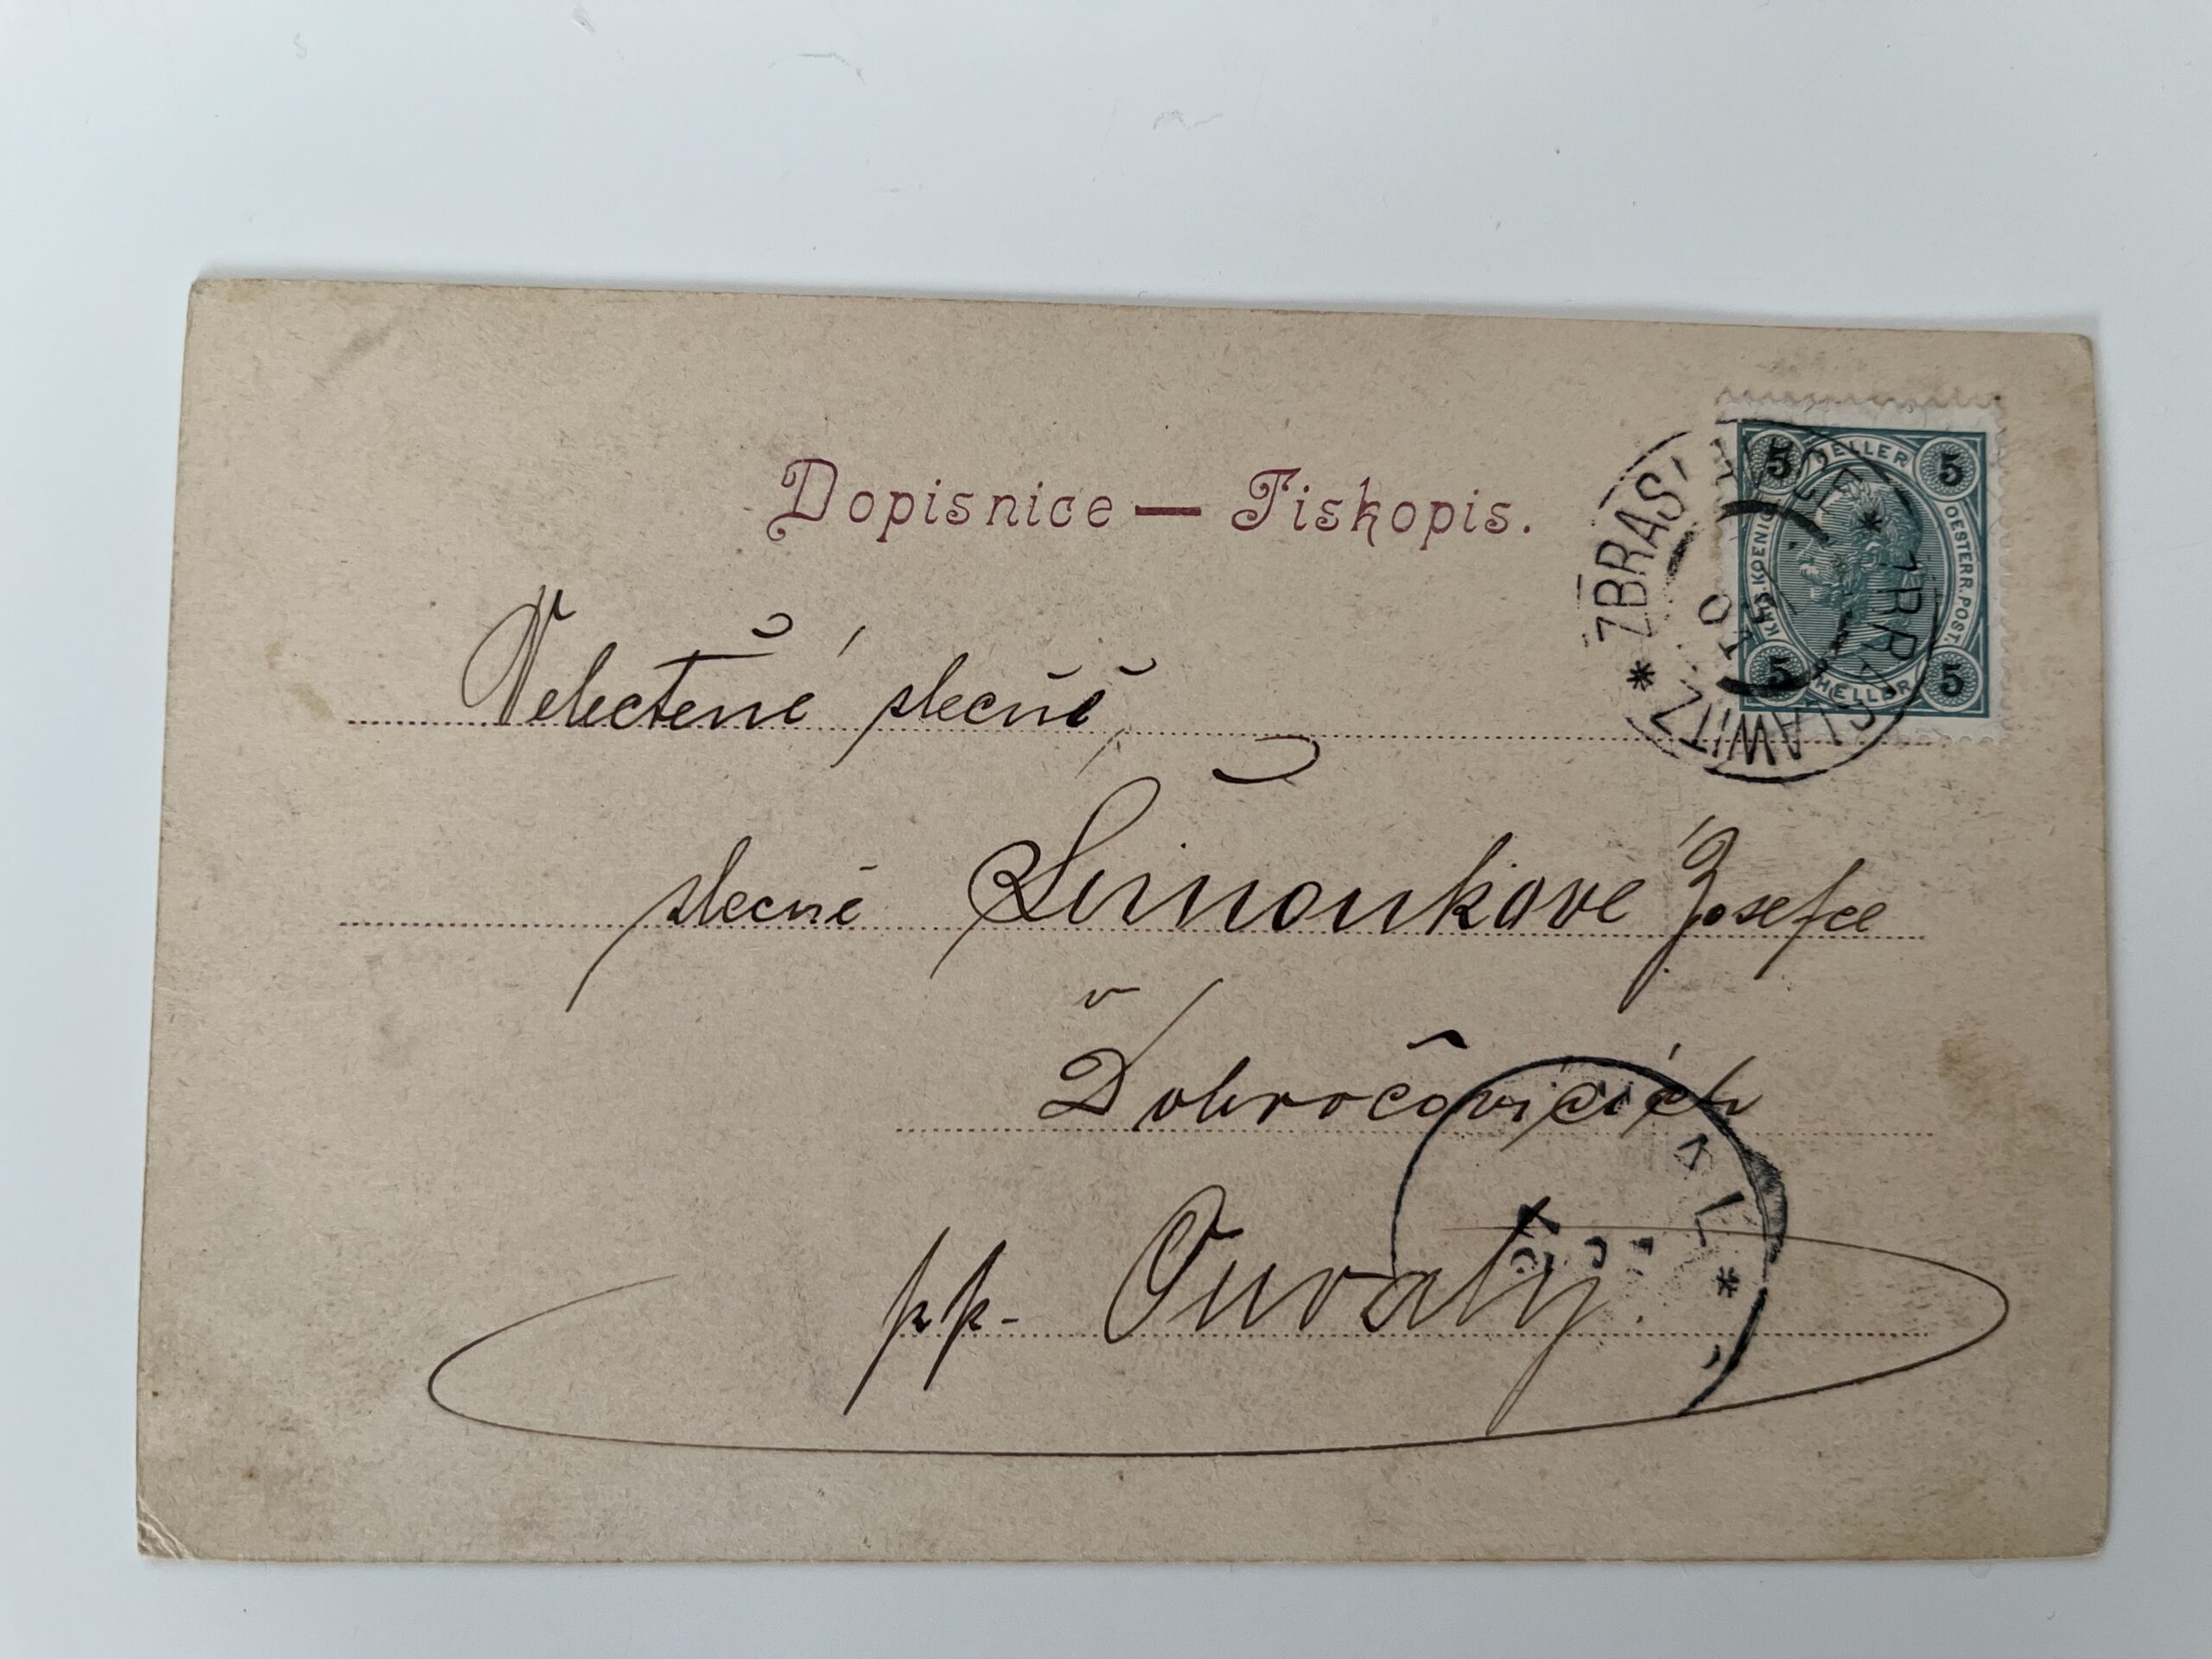 Dopisnice — Tiskopis.
5 HELLER 5
KAIS. KOENIGL. OESTERR. POST.
5 HELLER 5
* ZBRASLAVICE * ZBRASLAWITZ
Velectěné slečně,
slečně Šimonkove Josefce
v Dobročovicích
pp. Ouvaly.